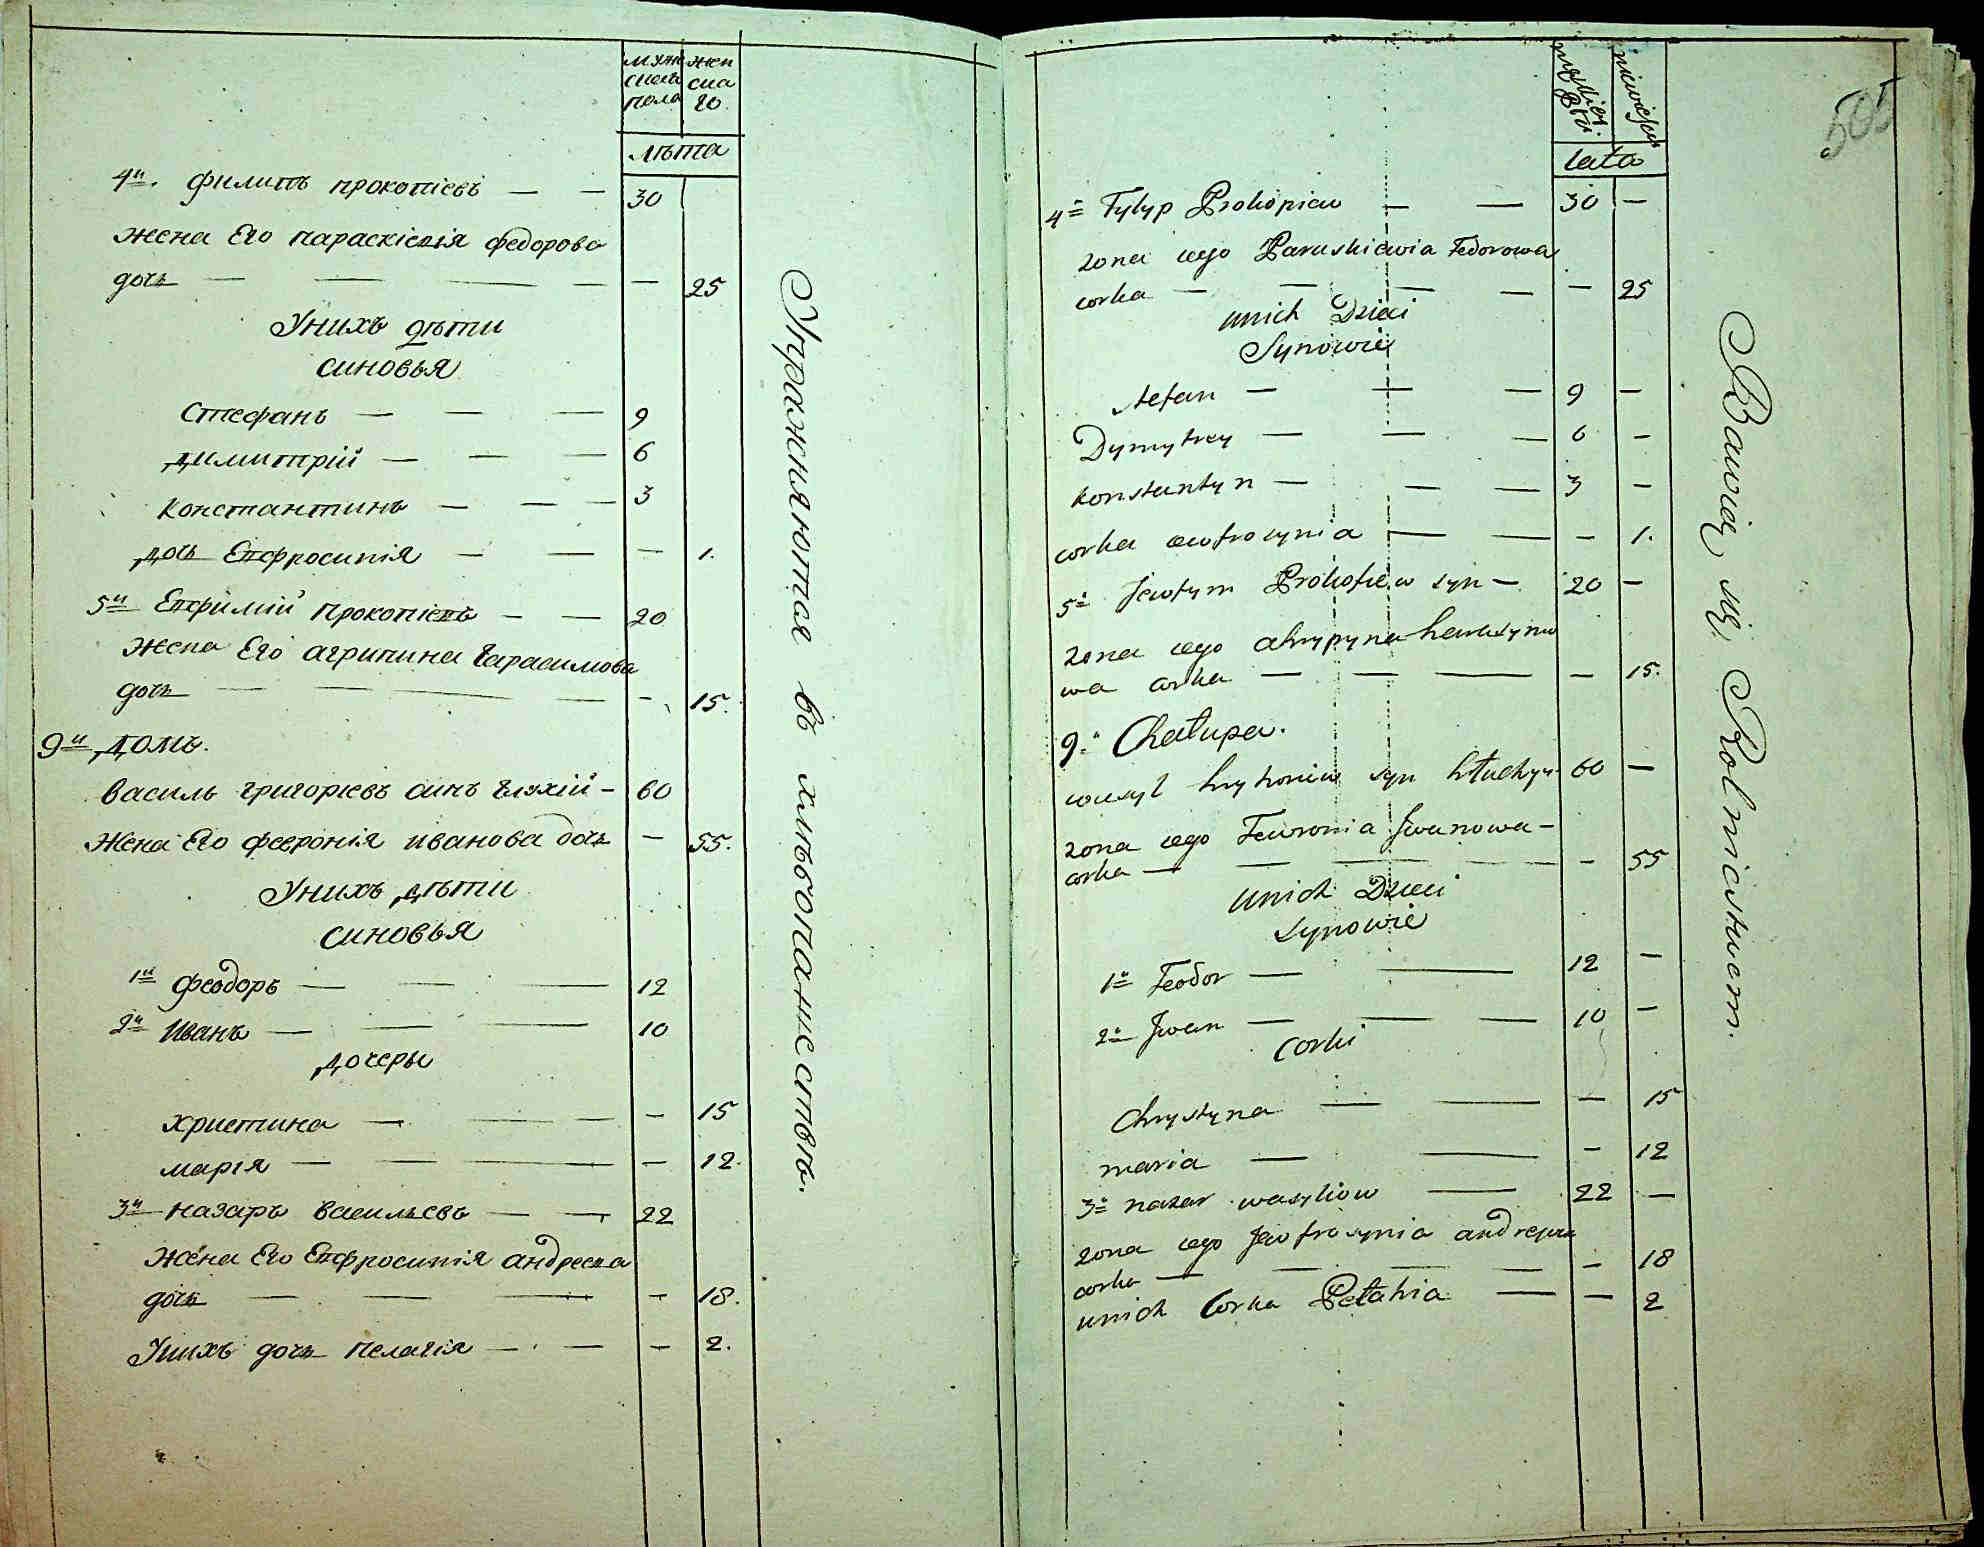 муж жен
ска ска
пола го.
лѣта
4й. филипъ прокопіевъ — — 30
жена Его параскіевія федорова
дочь — — — — — 25
Унихъ дѣти
синовья
Стефанъ — — — 9
димитрій — — — 6
константинъ — — — 3
дочь Евфросинія — — — 1.
5й Евфимій прокопіевъ — — 20
жена Его агрипина Гарасимова
дочь — — — — 15.
9й домъ.
василь григоріевъ синъ Глухій — 60
жена Его феврон​ія иванова дочь — 55.
Унихъ дѣти
синовья
1й феодоръ — — — 12
2й иванъ — — — 10
дочеры
христина — — — — 15
марія — — — — 12.
3й назаръ васильевъ — — 22
жена Его Евфросинія андреева
дочь — — — — 18.
Унихъ дочь пелагія — — — 2.
Упражняются въ хлѣбопашествѣ.
505
lata
4й Fylyp Prokopiew — — 30 —
zona iego Paraskiewia Fedorowa
corka — — — — — 25
unich Dzieci
Synowie
stefan — — — 9 —
Dymytrey — — — 6 —
konstantyn — — — 3 —
corka ewfrosynia — — — 1.
5й Jewfym Prokofiew syn — 20 —
zona iego ahrypyna harasymo
wa corka — — — — 15.
9й Chałupa.
wasyl hryhoriew syn hłuchyi 60 —
zona iego Fewronia Jwanowa —
corka — — — — — 55
unich Dzieci
synowie
1й Feodor — — 12 —
2й Jwan — — — 10 —
Corki
Chrystyna — — — 15
maria — — — 12
3й nazar wasyliow — 22 —
zona iego Jewfrosynia andrejewa
corka — — — — — 18
unich Corka Pełahia — — 2
Bawią się Rolnictwem.